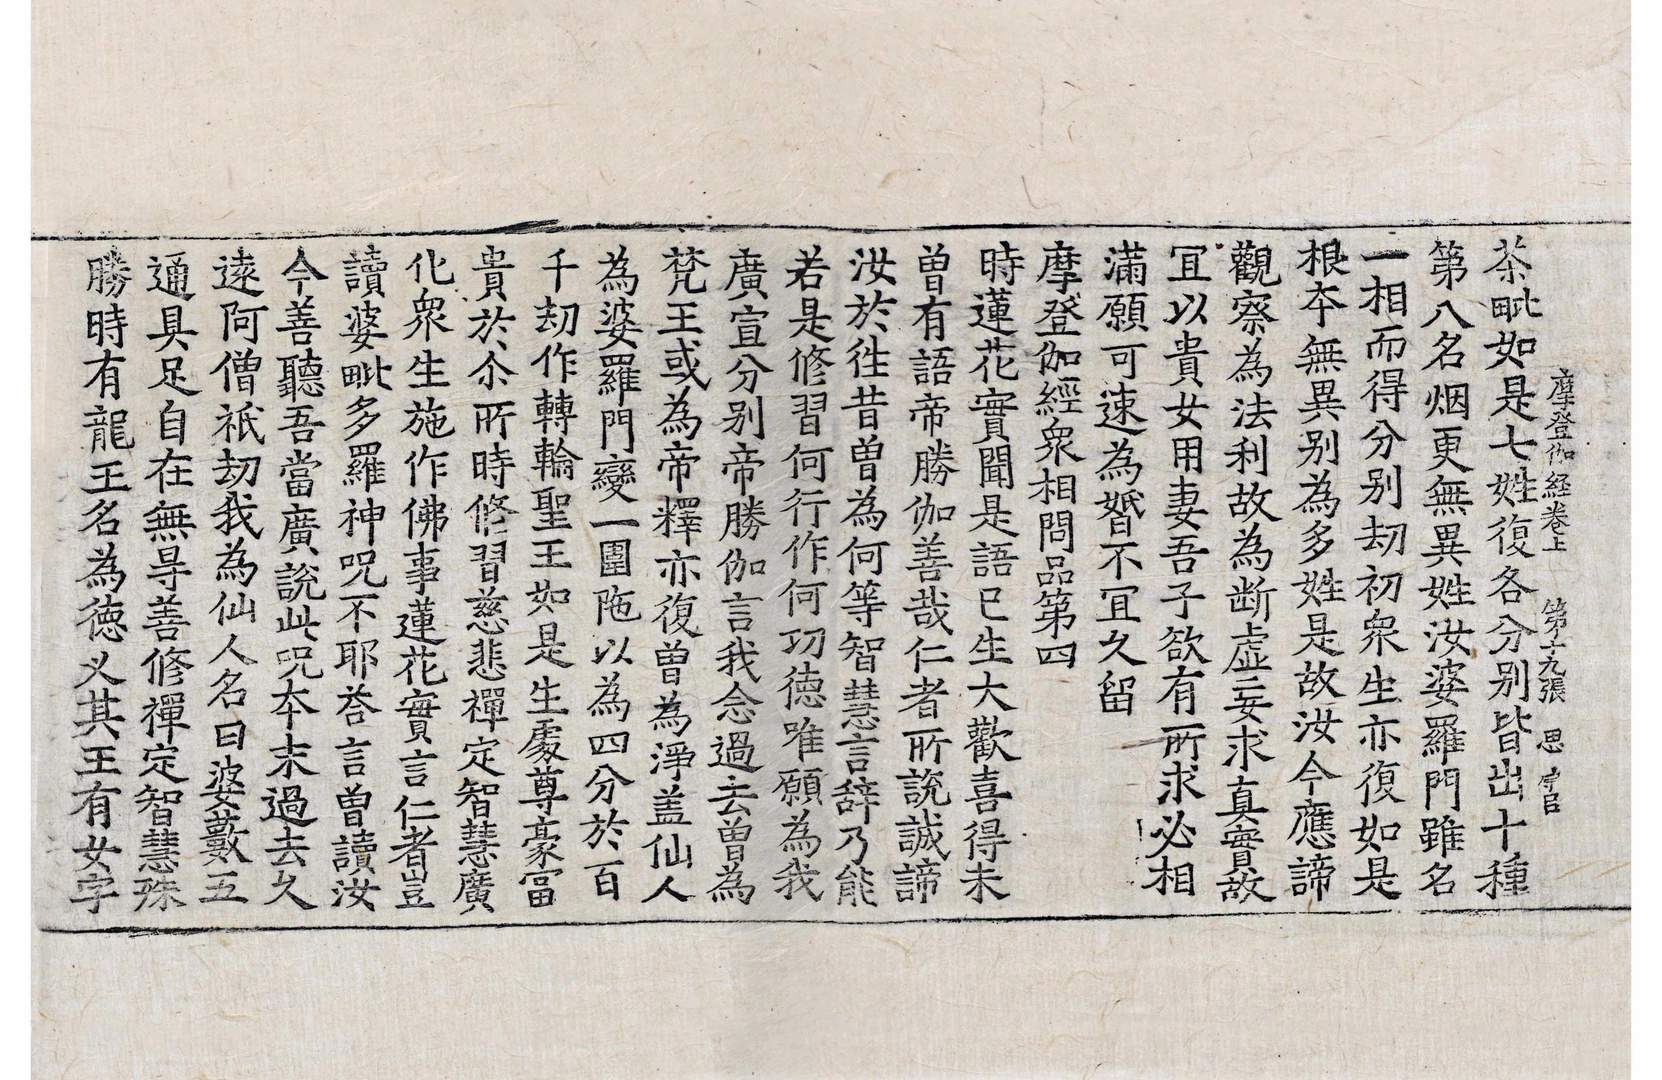 摩登伽経卷上 第十九張 思
茶毗如是七姓復各分別皆出十種
第八名烟更無異姓汝婆羅門雖名
一相而得分別劫初衆生亦復如是
根本無異別為多姓是故汝今應諦
觀察為法利故為断虛妄求真實故
冝以貴女用妻吾子欲有所求必相
滿願可速為婚不冝久留
摩登伽經衆相問品第四
時蓮花實聞是語已生大歡喜得未
曽有語帝勝伽善哉仁者所說誠諦
汝於徃昔曽為何等智慧言辞乃能
若是修習何行作何功徳唯願為我
廣宣分別帝勝伽言我念過去曽為
梵王或為帝釋亦復曽為淨盖仙人
為婆羅門變一圍陁以為四分於百
千劫作轉輪聖王如是生處尊豪富
貴於尒所時修習慈悲禪定智慧廣
化衆生施作佛事蓮花實言仁者豈
讀婆毗多羅神呪不耶荅言曽讀汝
今善聽吾當廣說此呪本末過去久
逺阿僧祇劫我為仙人名曰婆藪五
通具足自在無㝵善修禪定智慧殊
勝時有龍王名為徳义其王有女字